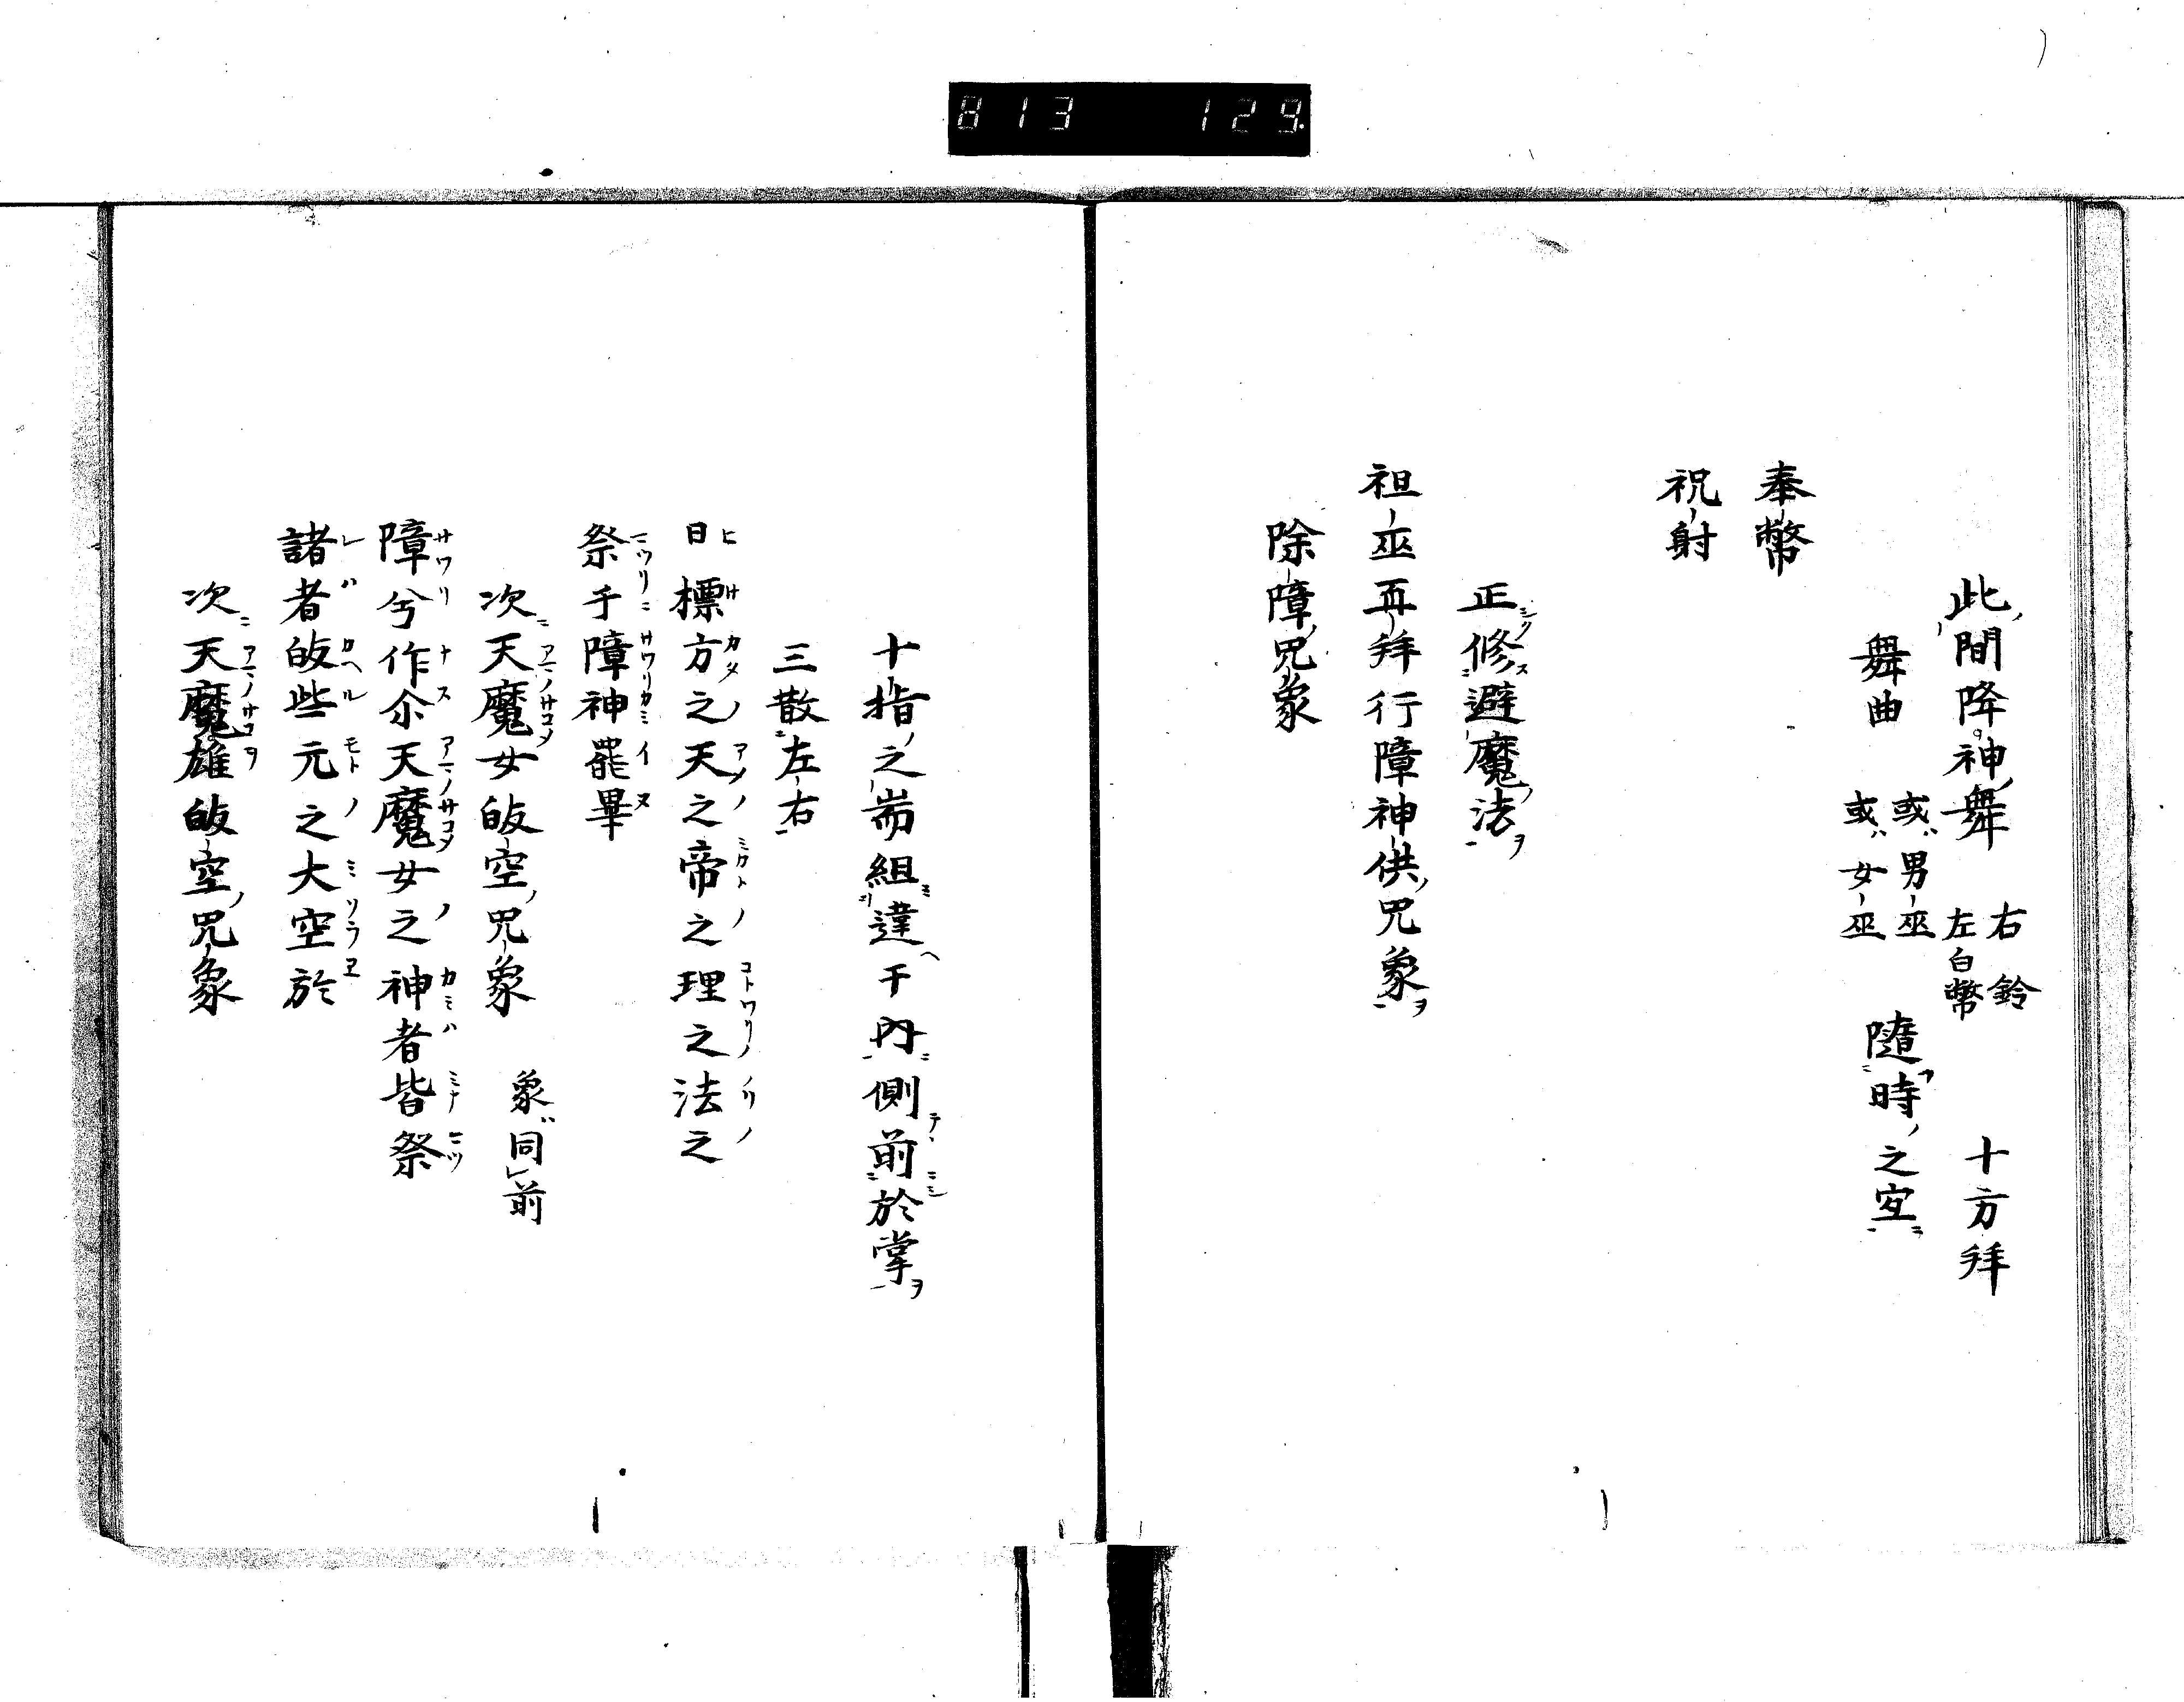 813 129.
此間降神舞 右鈴 左白幣 十方拜
舞曲 或ハ男巫 或ハ女巫 隨時之宜ニ
奉幣
祝射
正修避魔法ヲ
祖巫再拜行障神供咒象ヲ
除障咒象
十指之耑組違于内側前於掌ヲ
三散左右
日標方之天之帝之理之法之
祭于障神罷畢
次天魔女皈空咒象 象同前
障兮作尒天魔女之神者皆祭
諸者皈些元之大空於
次天魔雄皈空咒象